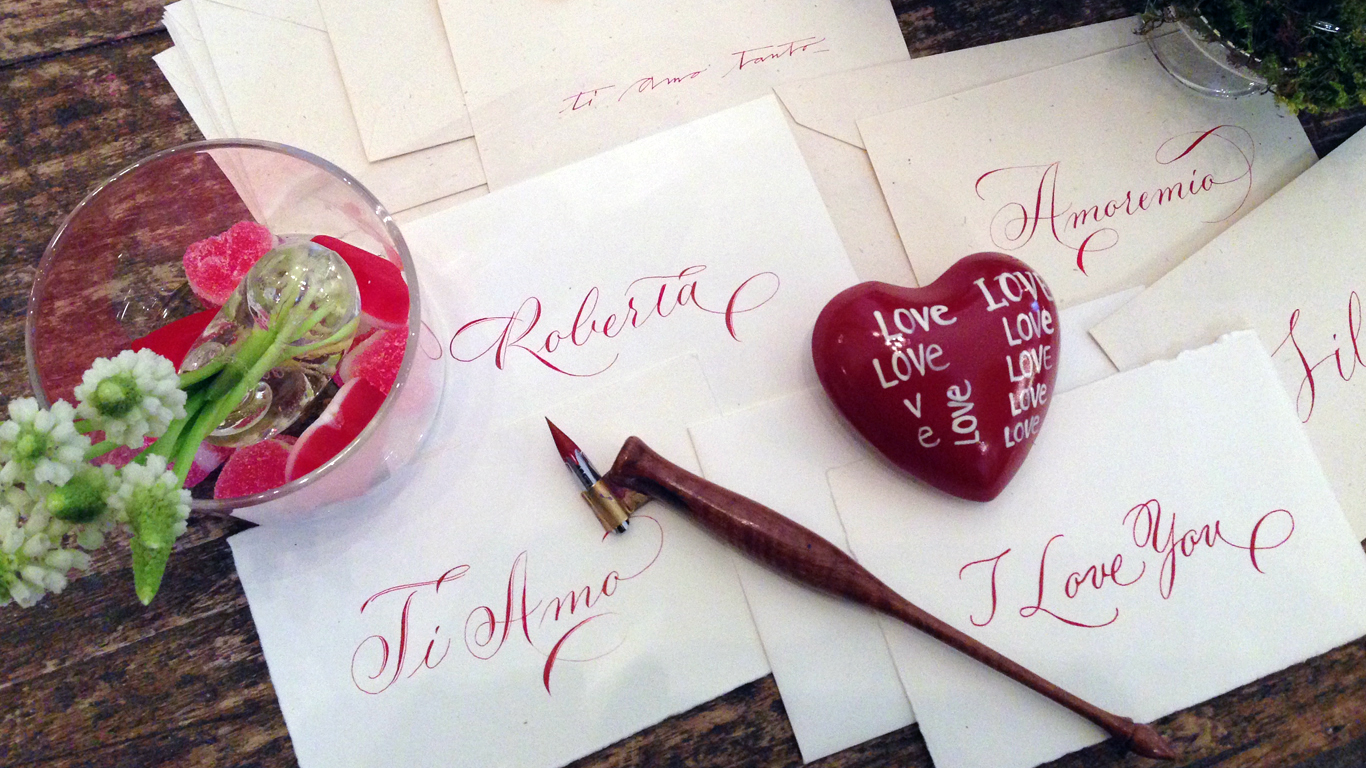 ti amo tanto
Amoremio
Roberta
LOVE
LOVE
V
e
LOVE
LOVE
LOVE
LOVE
LOVE
LOVE
I Love You
Ti Amo